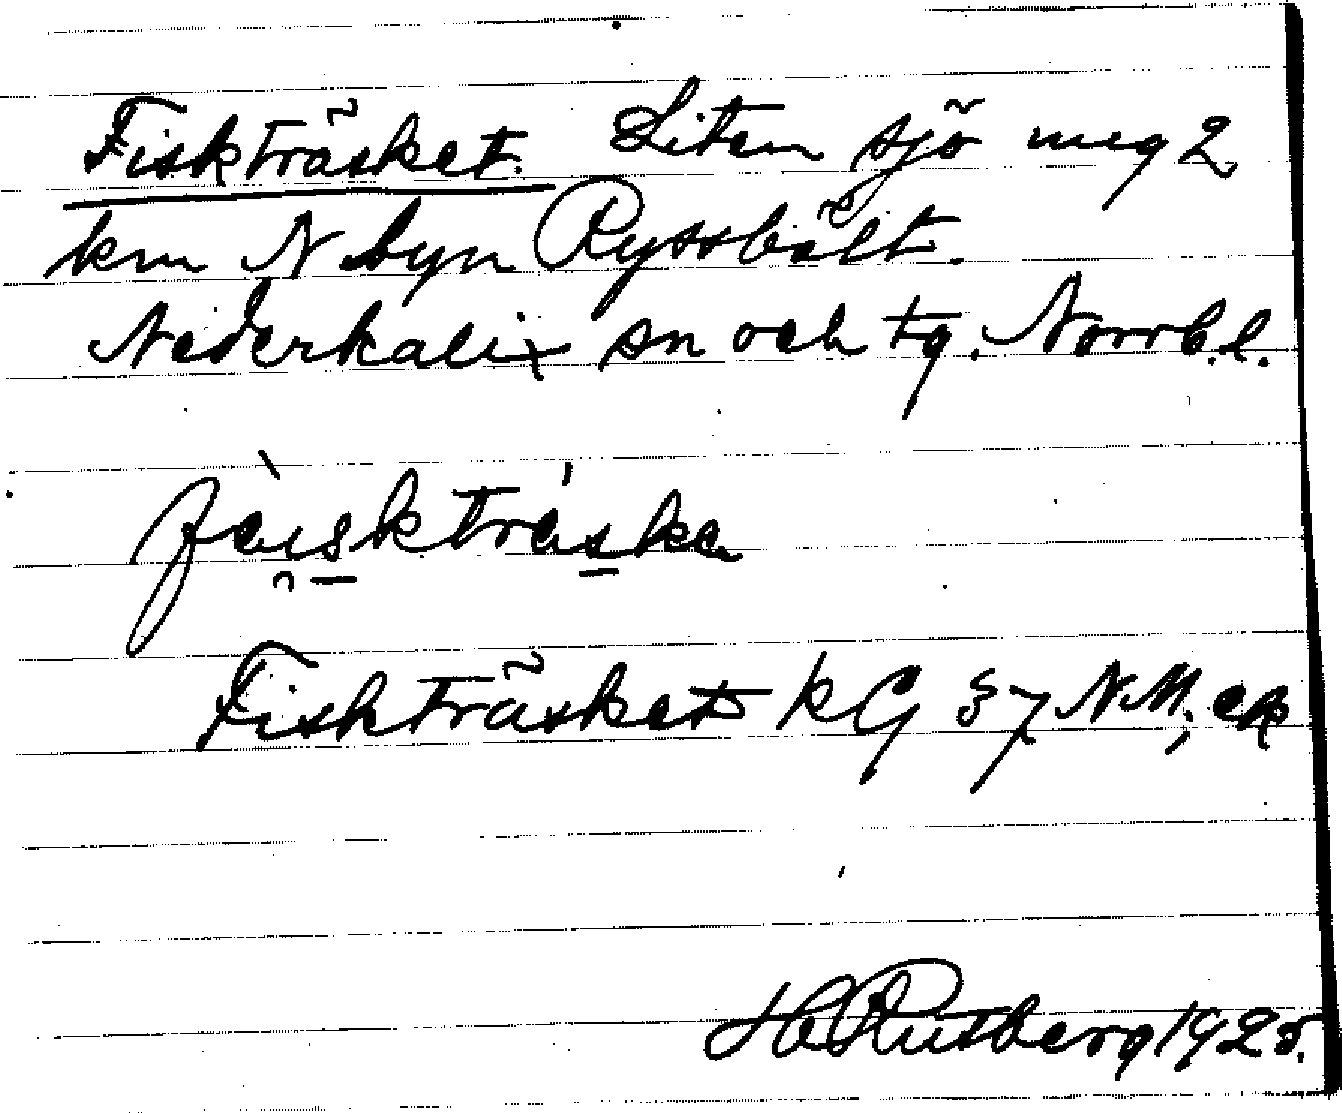 Fiskträsket. Liten sjö meg 2
km N byn Ryssbält.
Nederkalix sn och tg. Norrb.l.
fèiskträ́ska
Fiskträsket kG 37 N.M., ek
H Rutberg 1925.